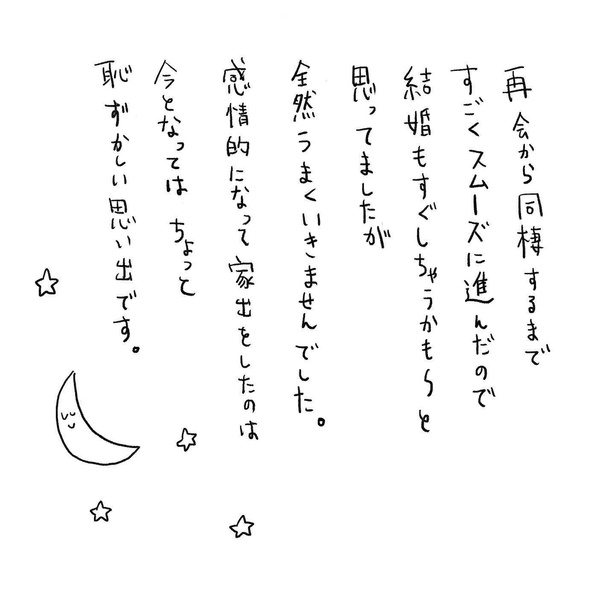 再会から同棲するまで
すごくスムーズに進んだので
結婚もすぐしちゃうかもらと
思ってましたが
全然うまくいきませんでした。
感情的になって家出をしたのは
今となってはちょっと
恥ずかしい思い出です。